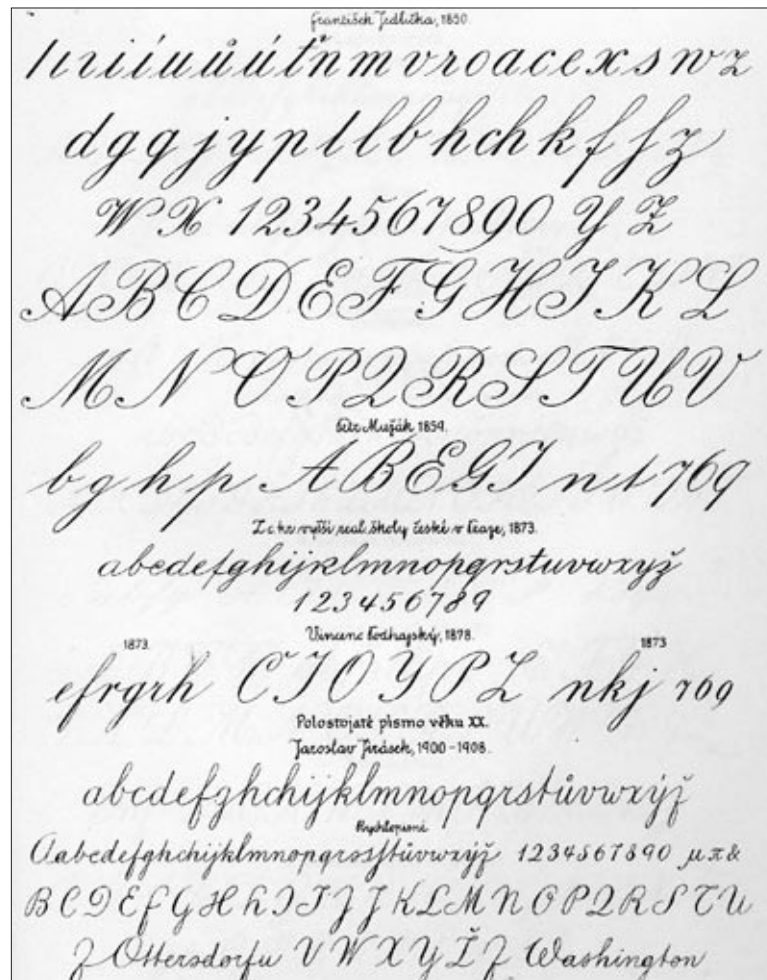 František Jedlička, 1850.
l ı r i í u ů ú ť n m v r o a c e x s w z
d g q j y p l l b h ch k f f z
W X 1 2 3 4 5 6 7 8 9 0 Y Z
A B C D E F G H I K L
M N O P Q R S T U V
Petr Mužák 1854.
b g h p A B E G I n t 7 6 9
Z c. kr. vyšší real. školy české v Praze, 1873.
abcdefghijklmnopqrstuvwxyž
123456789
Vincenc Podhajský, 1878.
1873. 1873
efrgrh C I O Y P Z nkj 769
Polostojaté písmo věku XX.
Jaroslav Jirásek, 1900-1908.
abcdefghchijklmnopqrstůvwxýž
Rychlopisné
Aabcdefghchijklmnopqrosſstůvwxýž 1234567890 µπ&
B C D E F G H Ch I J J J K L M N O P Q R S T U
Z Ottersdorfu V W X Y Ž Z Washington